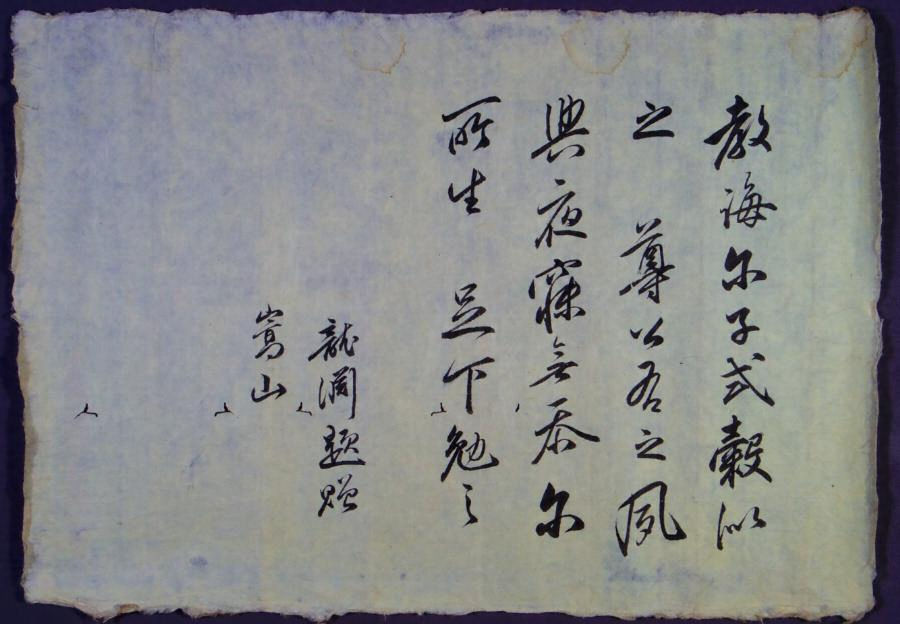 教誨尔子式穀似
之 尊公有之夙
興夜寐無忝尔
所生 足下勉之
龍澗題贈
嵩山